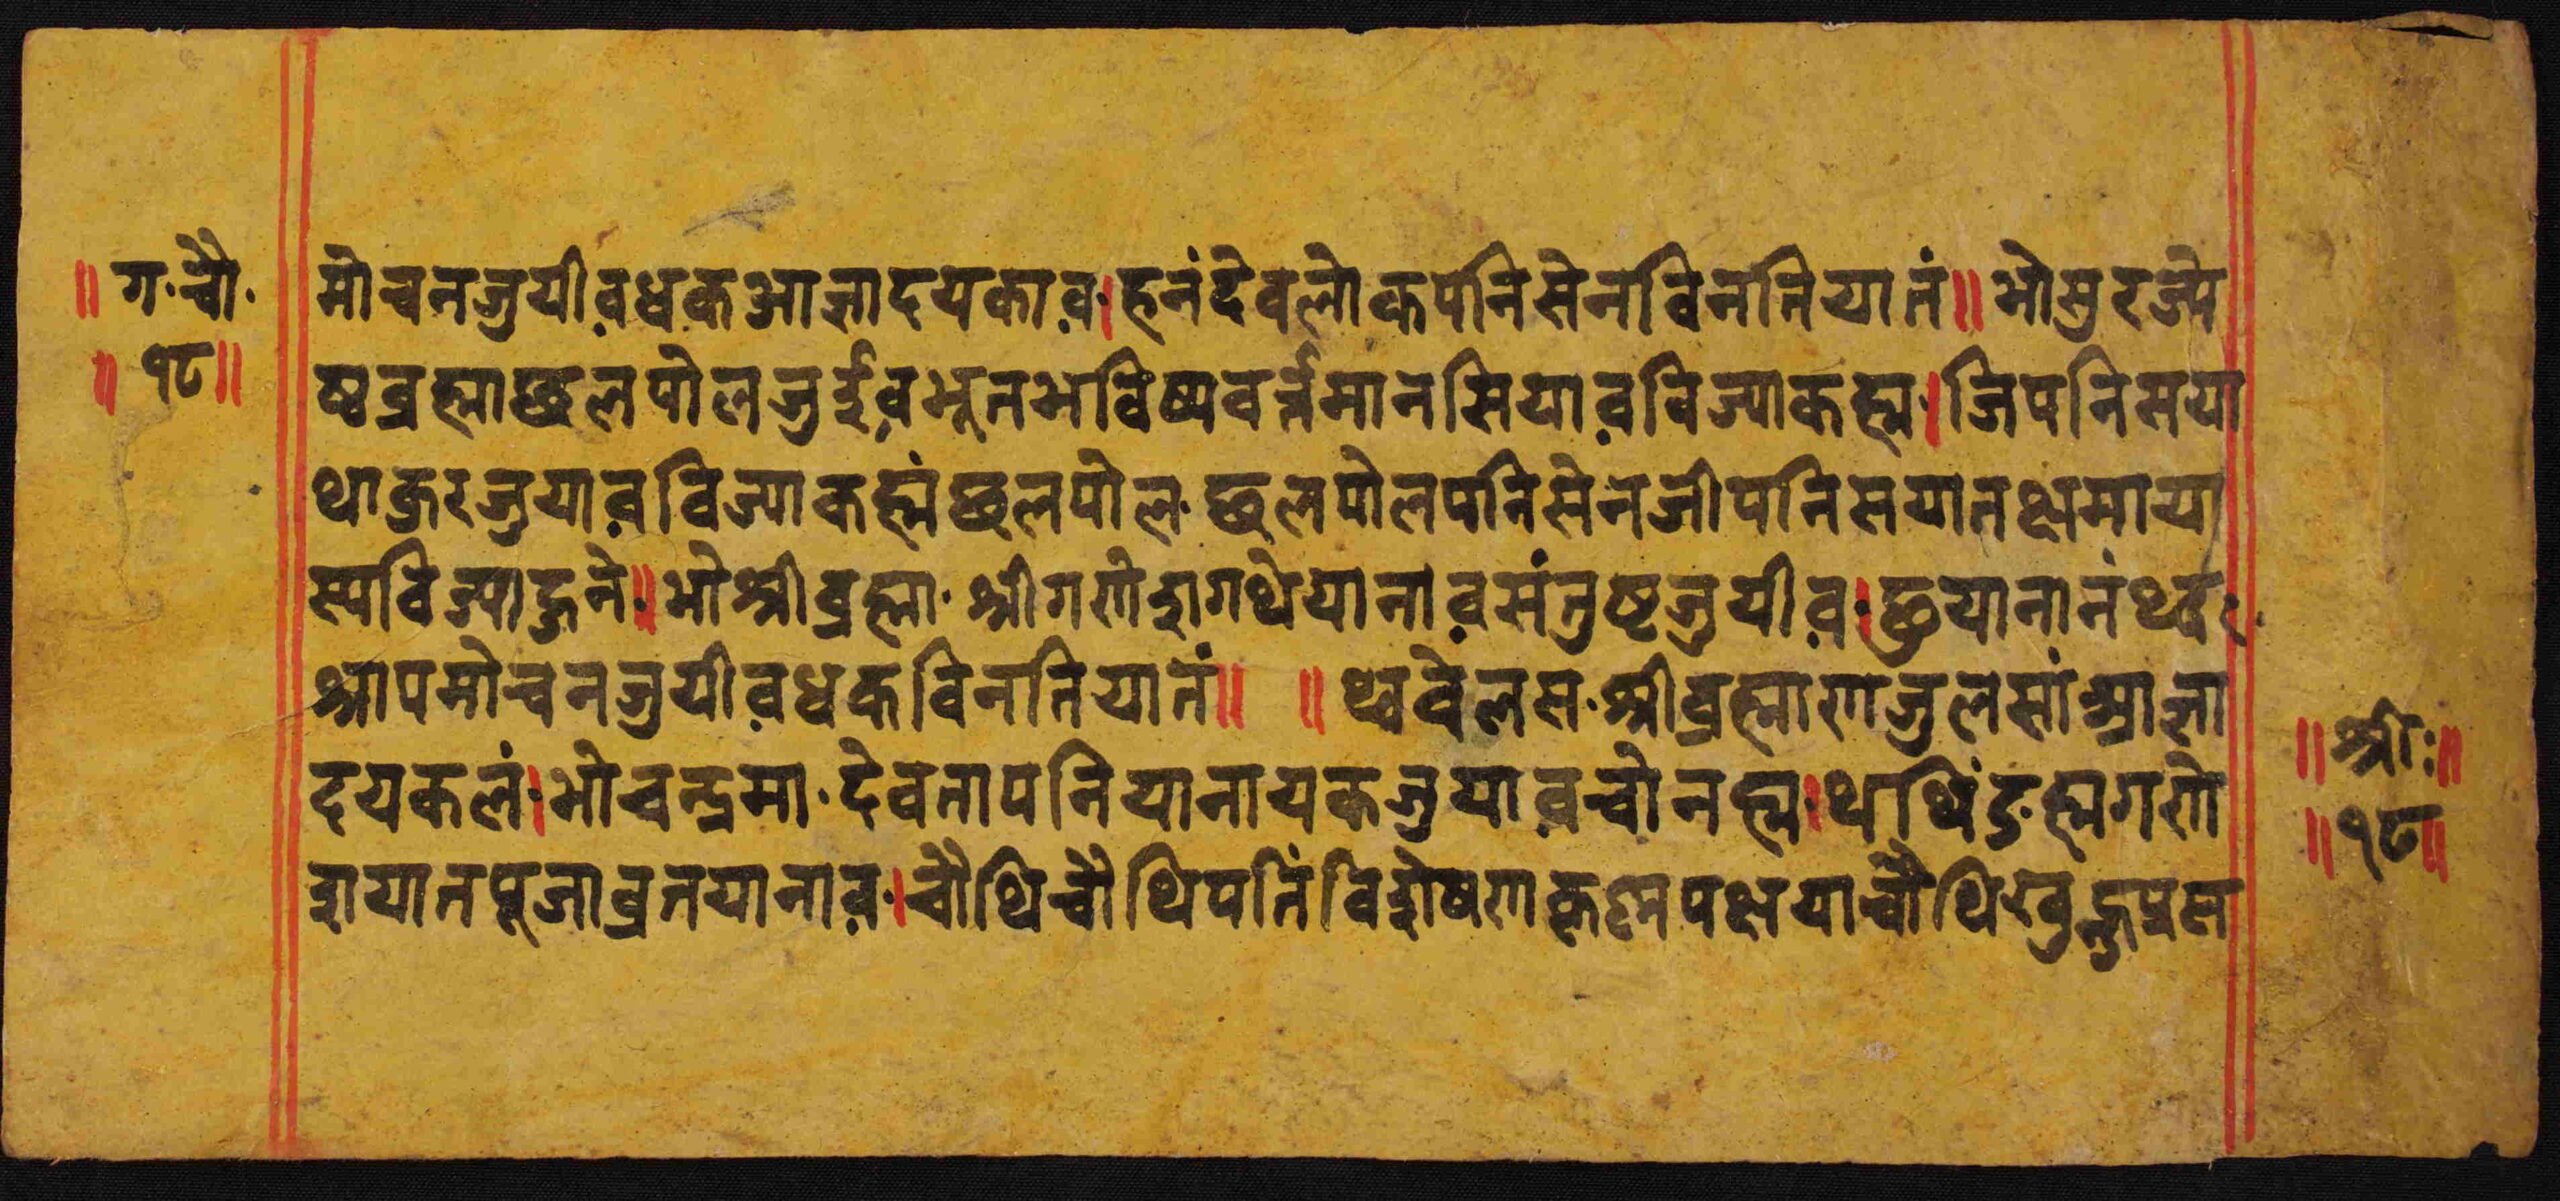 ॥ ग॰चौ॰
॥ १८॥
मोचनजुयीव़धकआज्ञादयकाव़।हनंदेवलोकपनिसेनविनतियातं॥भोसुरज्ये
ष्ठब्रह्माछलपोलजुईव़भूतभविष्यवर्त्तमानसियाव़विज्याकह्म।जिपनिसया
थाकुरजुयाव़विज्याकह्मंछलपोल॰छलपोलपनिसेनजीपनिसयातक्षमाया
स्यविज्याहुने॥भोश्रीब्रह्मा॰श्रीगणेशगथेयानाव़संतुष्टजुयीव़।छुयानानंथ्व
श्रापमोचनजुयीव़धकविनतियातं॥ ॥थ्ववेलस॰श्रीब्रह्माणजुलसांआज्ञा
दयकलं।भोचन्द्रमा॰देवतापनियानायकजुयाव़चोनह्म।थथिंङह्मगणे
शयातपूजाव्रतयानाव़।चौथिचौथिपतिंविशेषणकृष्णपक्षयाचौथिखुन्हुप्रस
॥श्रीः॥
॥१८॥